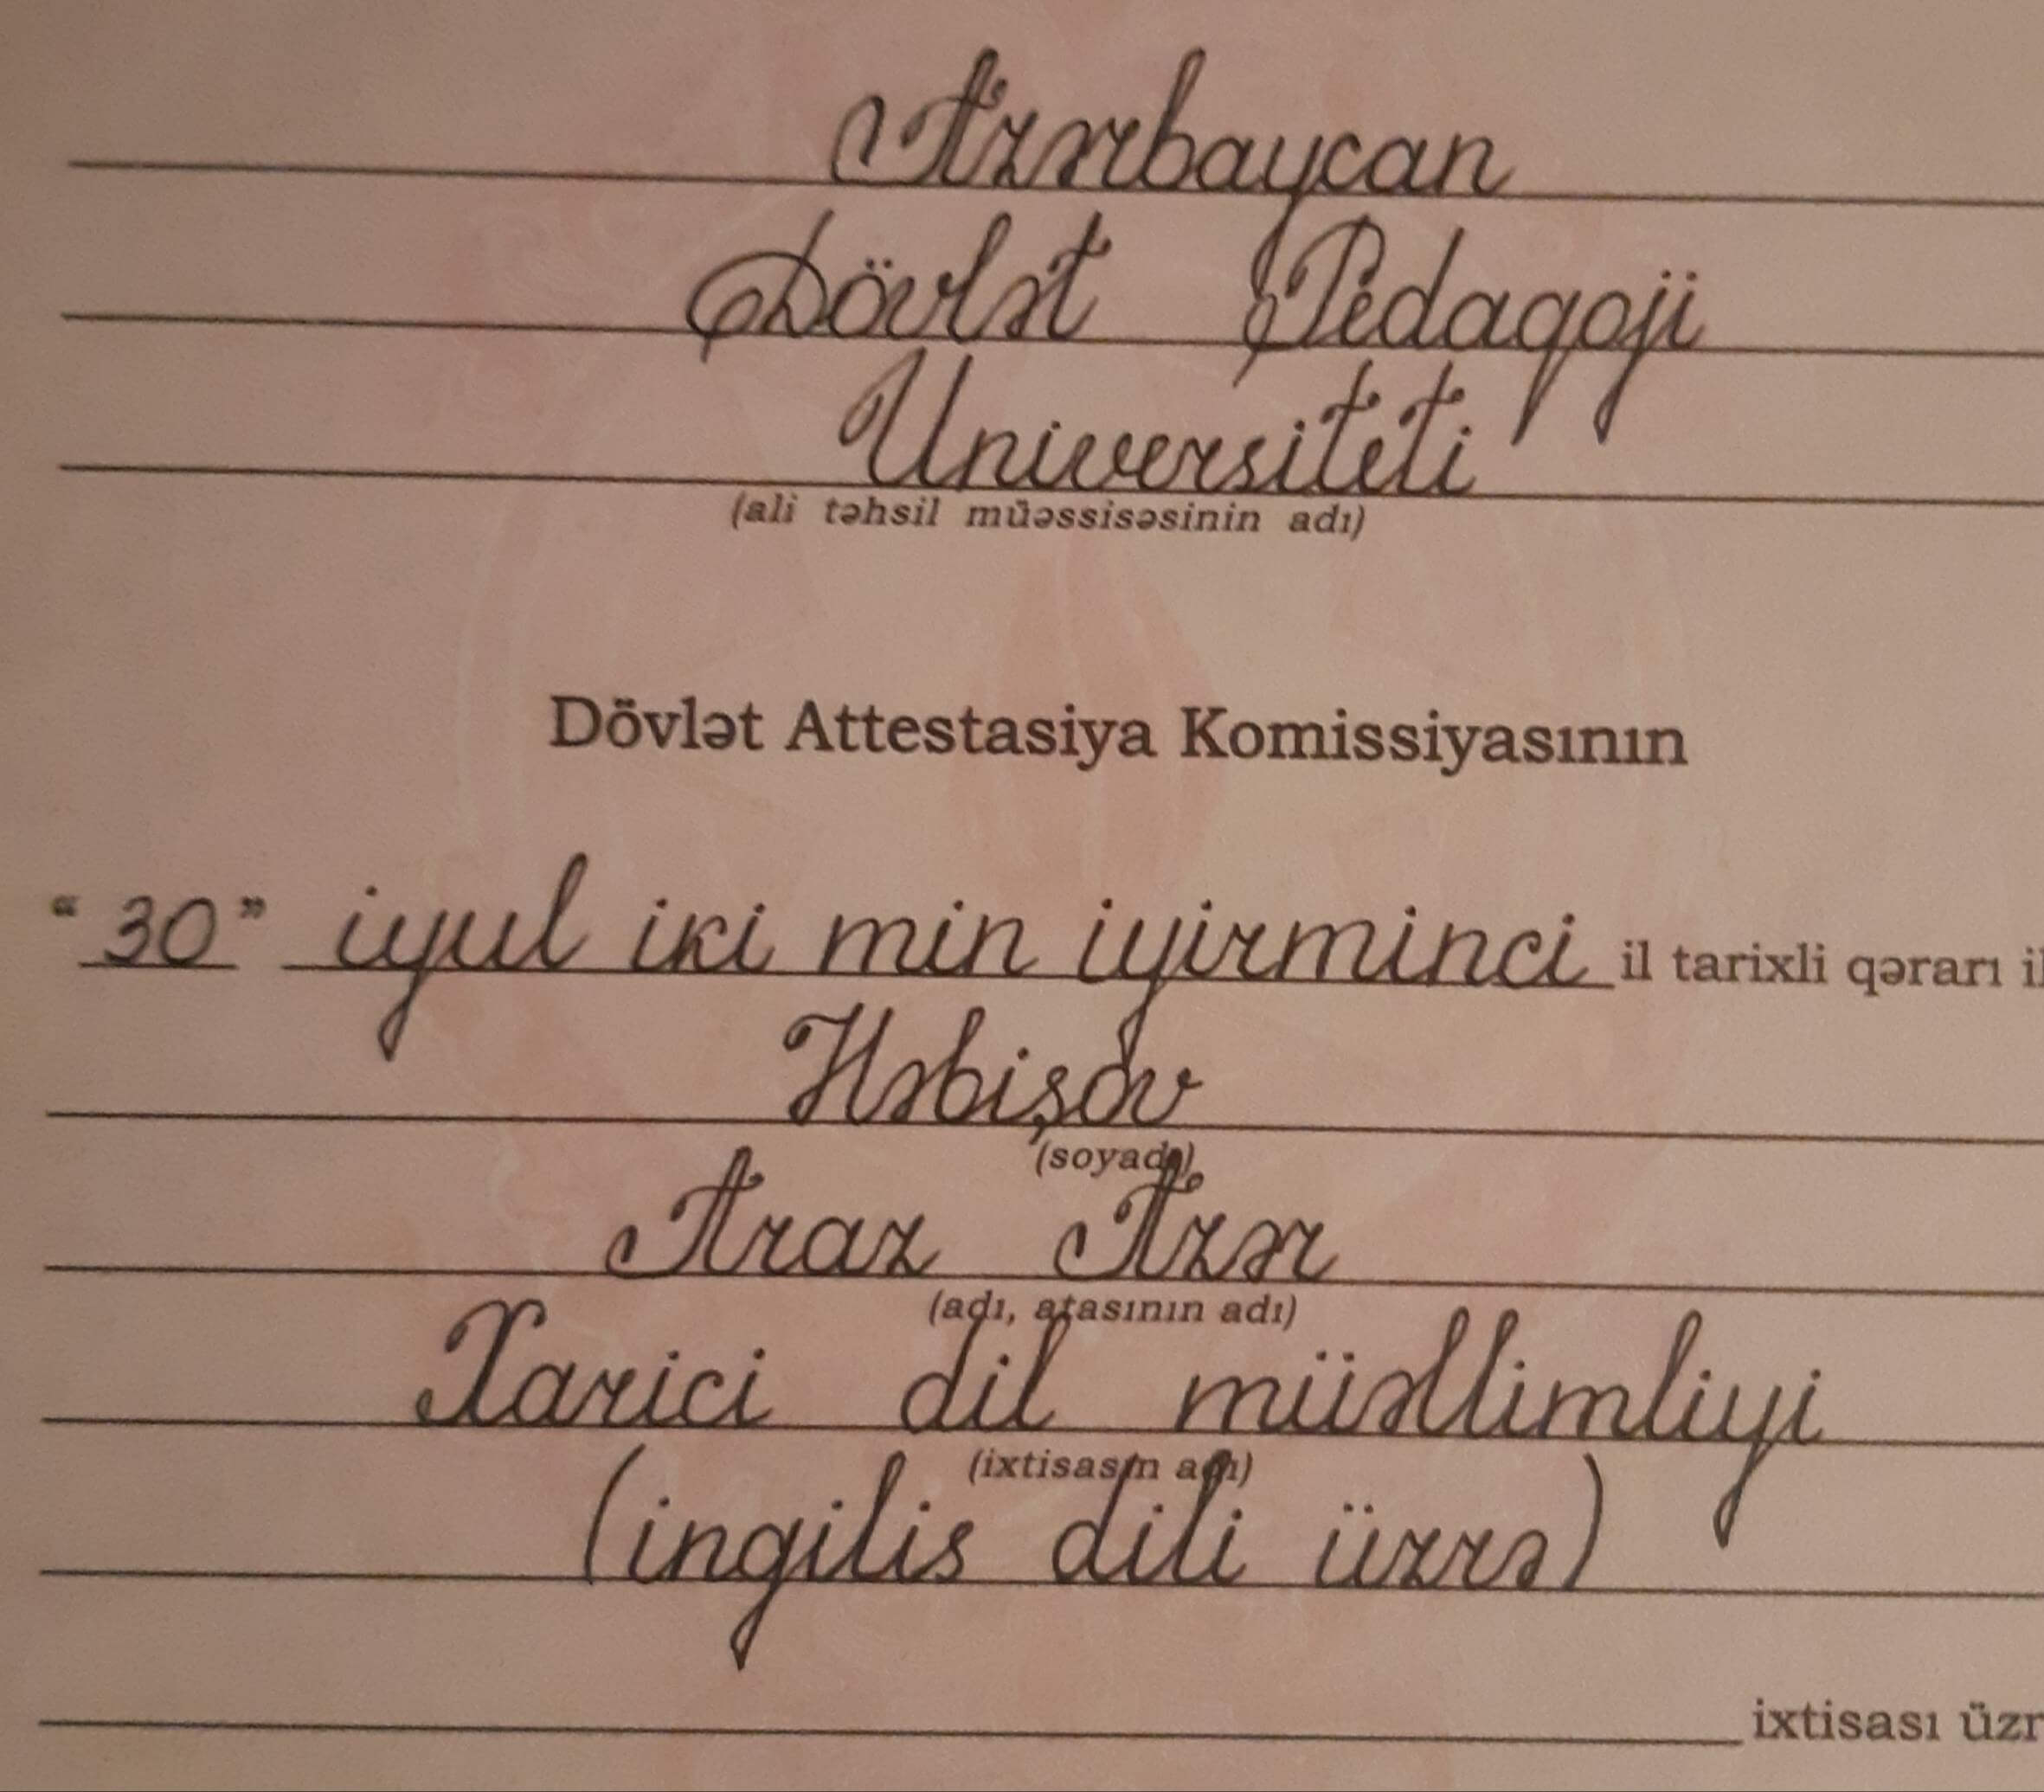 Azərbaycan
Dövlət Pedaqoji
Universiteti
(ali təhsil müəssisəsinin adı)
Dövlət Attestasiya Komissiyasının
“30” iyul iki min iyirminci il tarixli qərarı il
Həbişov
(soyadı)
Araz Azər
(adı, atasının adı)
Xarici dil müəllimliyi
(ixtisasın adı)
(ingilis dili üzrə)
ixtisası üzr